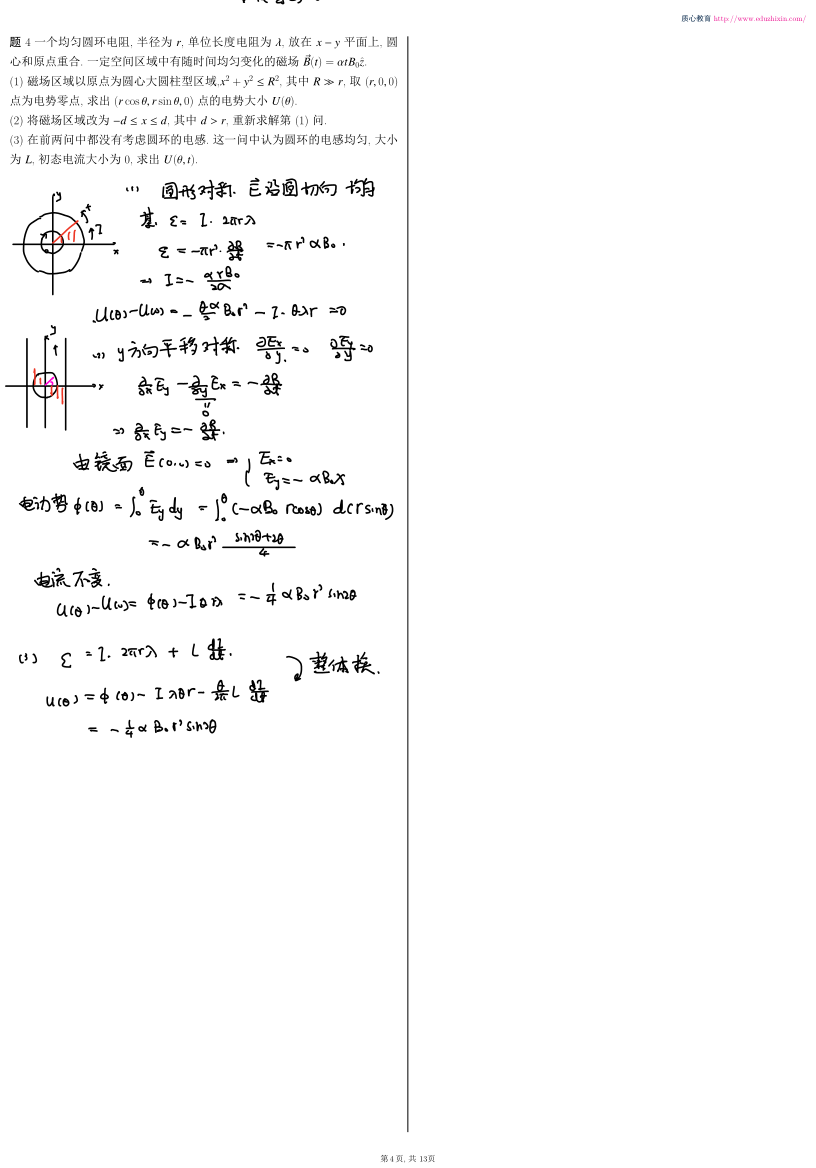 质心教育 http://www.eduzhixin.com/
题 4 一个均匀圆环电阻, 半径为 r, 单位长度电阻为 λ, 放在 x − y 平面上, 圆
心和原点重合. 一定空间区域中有随时间均匀变化的磁场 B⃗(t) = αtB₀ẑ.
(1) 磁场区域以原点为圆心大圆柱型区域,x² + y² ≤ R², 其中 R ≫ r, 取 (r, 0, 0)
点为电势零点, 求出 (r cos θ, r sin θ, 0) 点的电势大小 U(θ).
(2) 将磁场区域改为 −d ≤ x ≤ d, 其中 d > r, 重新求解第 (1) 问.
(3) 在前两问中都没有考虑圆环的电感. 这一问中认为圆环的电感均匀, 大小
为 L, 初态电流大小为 0, 求出 U(θ, t).
(1) 圆形对称. E⃗ 沿圆切向 均匀
y + I x
ε = I · 2πrλ
ε = −πr² · ∂B/∂t = −πr²αB₀.
⇒ I = − αrB₀/2λ
U(θ)−U(0) = − θα/2 B₀r² − I·θλr = 0
y x
(2) y方向平移对称. ∂Ex/∂y = 0 ∂Ey/∂y = 0
∂/∂x Ey − ∂/∂y Ex = − ∂B/∂t
0
⇒ ∂/∂x Ey = − ∂B/∂t.
由镜面 E⃗(0,0) = 0 ⇒ { Ex = 0
Ey = − αB₀x
电动势 φ(θ) = ∫₀^θ Ey dy = ∫₀^θ (−αB₀ r cosθ) d(r sinθ)
= − αB₀r² (sin2θ+2θ)/4
电流不变.
U(θ)−U(0) = φ(θ)−Iθrλ = − 1/4 αB₀r² sin2θ
(3) ε = I · 2πrλ + L dI/dt.
整体换.
U(θ) = φ(θ) − Iλθr − θ/2π L dI/dt
= − 1/4 αB₀r² sin2θ
第 4 页, 共 13页